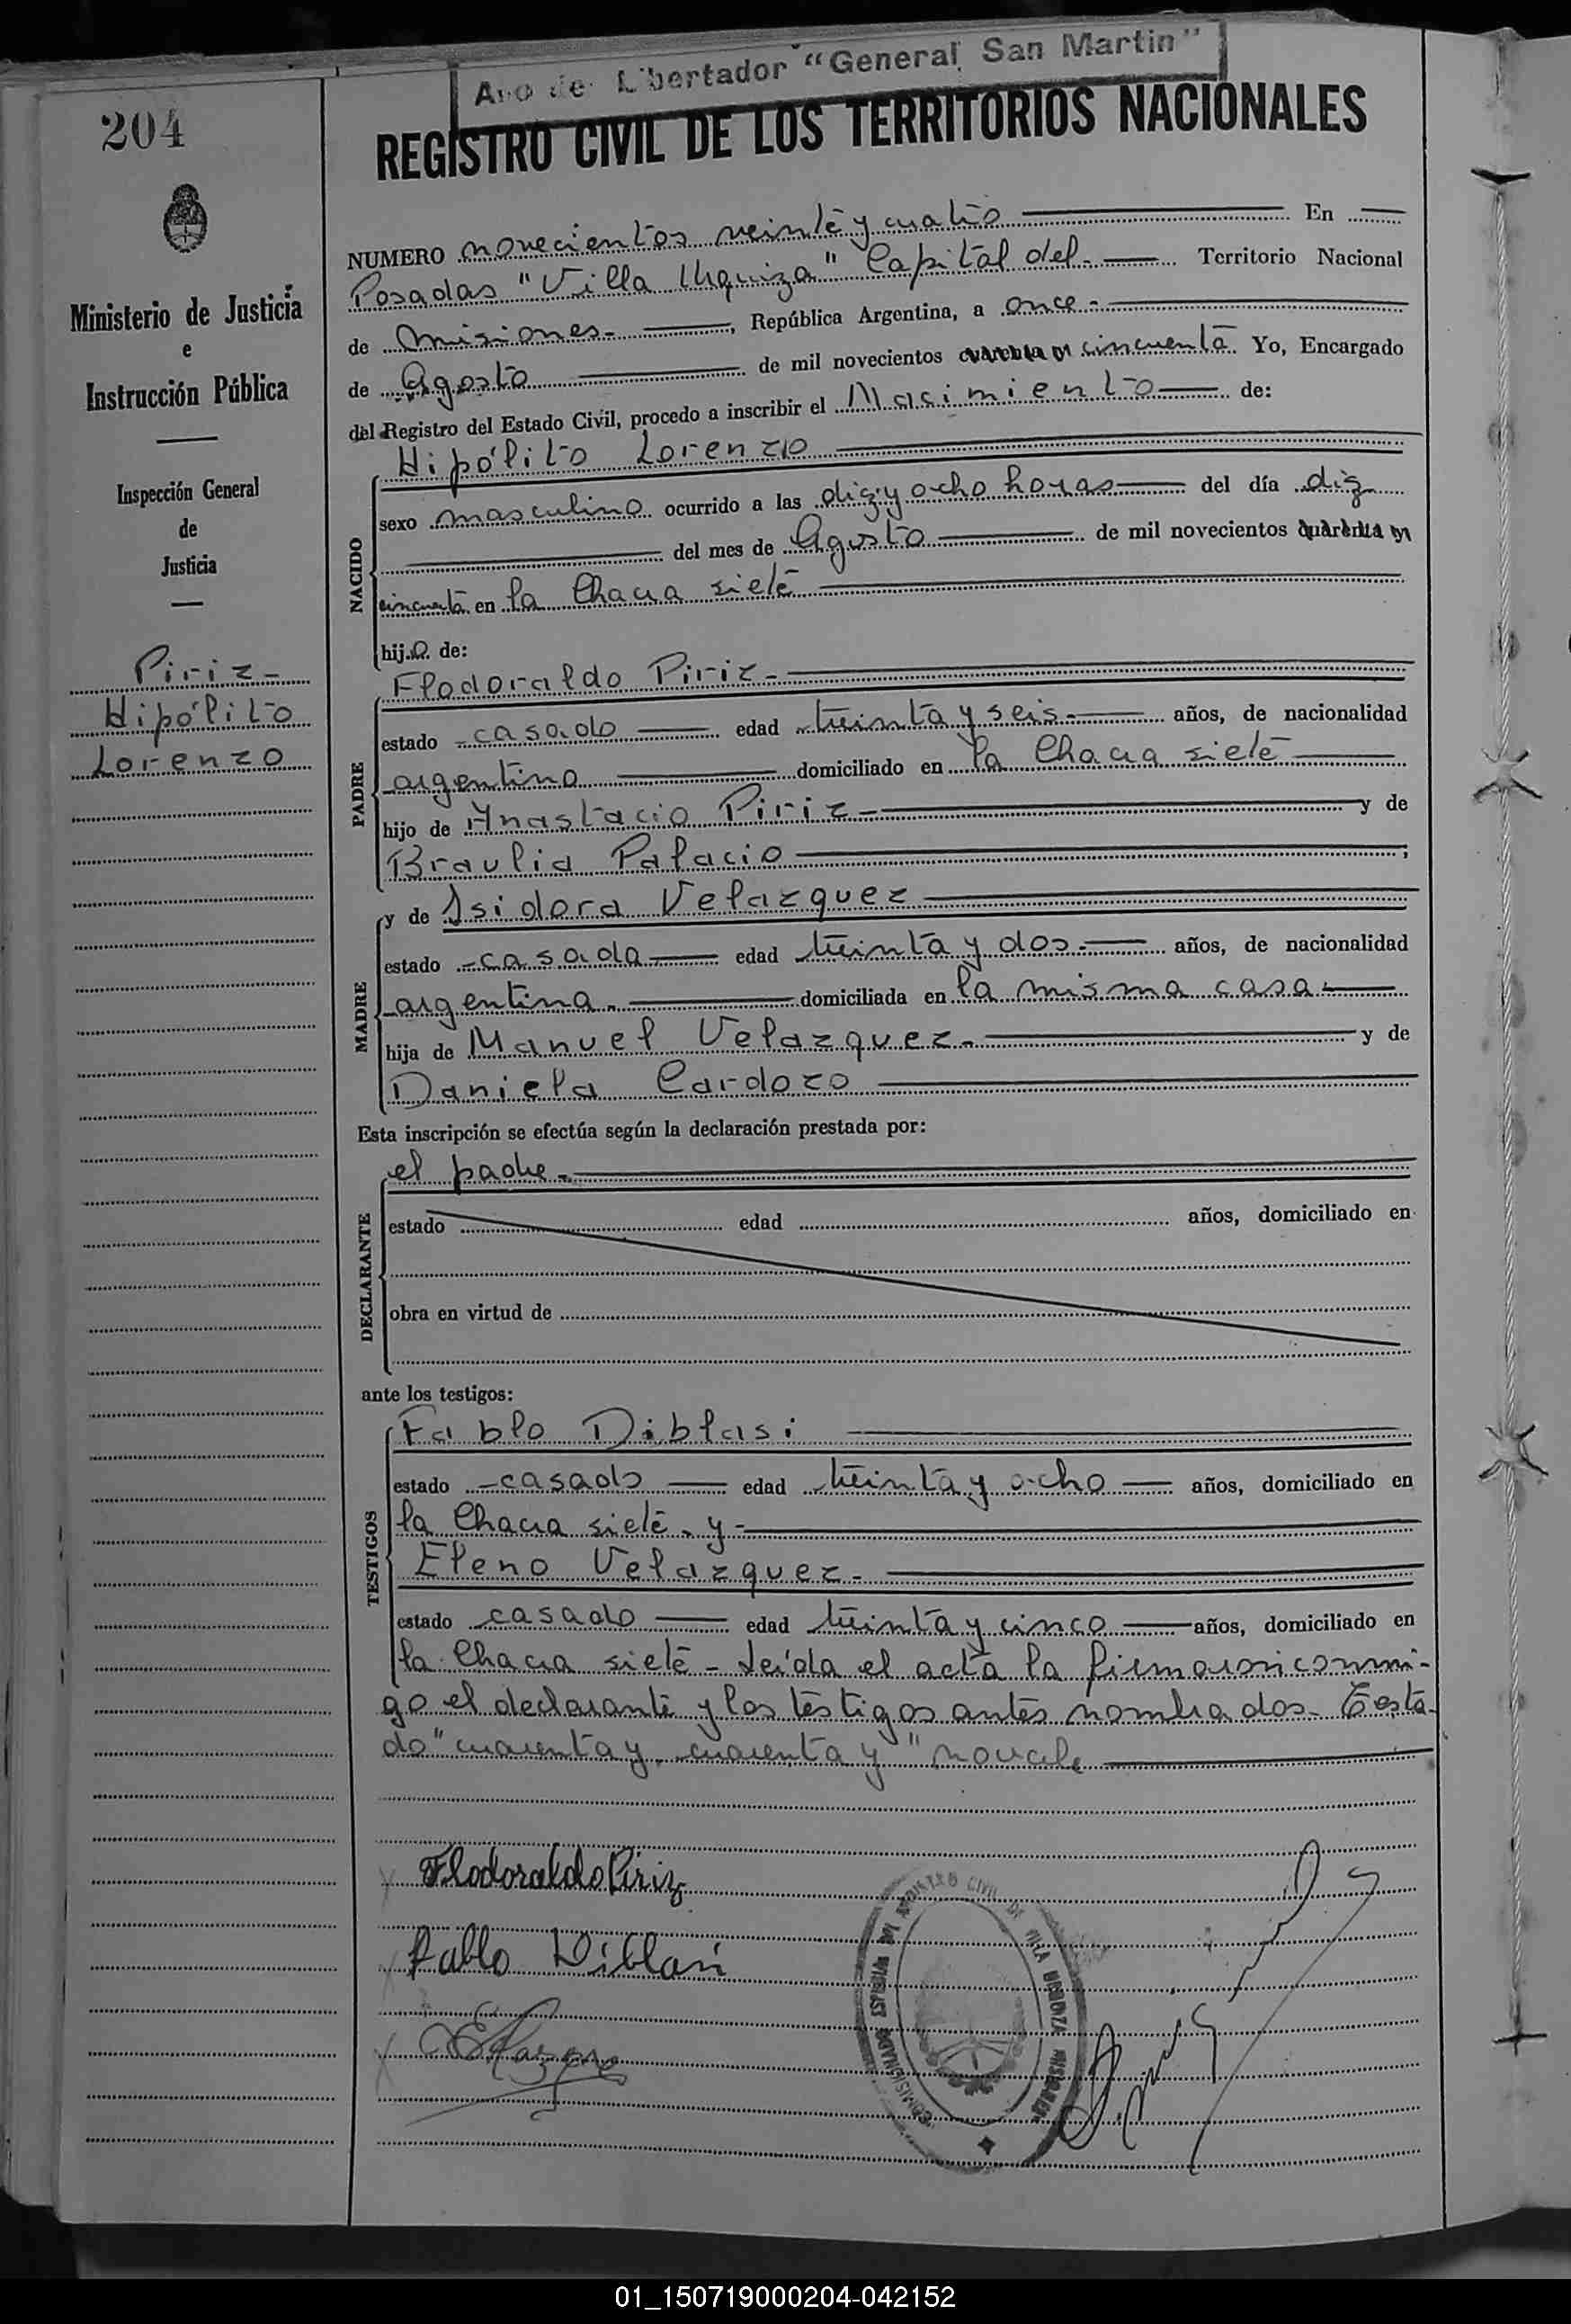 Año del Libertador "General San Martin"
204
REGISTRO CIVIL DE LOS TERRITORIOS NACIONALES
Ministerio de Justicia
e
Instrucción Pública
Inspección General
de
Justicia
Piriz-
Hipólito
Lorenzo
NUMERO novecientos veinte y cuatro En
Posadas "Villa Urquiza" Capital del- Territorio Nacional
de Misiones-, República Argentina, a once-
de Agosto de mil novecientos cuarenta y cincuenta Yo, Encargado
del Registro del Estado Civil, procedo a inscribir el Nacimiento de:
NACIDO
Hipólito Lorenzo
sexo masculino ocurrido a las diez y ocho horas del día diez
del mes de Agosto de mil novecientos cuarenta y
cincuenta en la Chacra siete
hijo de:
PADRE
Flodoraldo Piriz-
estado casado edad treinta y seis- años, de nacionalidad
argentino domiciliado en la Chacra siete
hijo de Anastacio Piriz- y de
Braulia Palacio ;
MADRE
y de Isidora Velazquez
estado casada edad treinta y dos- años, de nacionalidad
argentina- domiciliada en la misma casa-
hija de Manuel Velazquez- y de
Daniela Cardozo
Esta inscripción se efectúa según la declaración prestada por:
DECLARANTE
el padre-
estado edad años, domiciliado en
obra en virtud de
ante los testigos:
TESTIGOS
Pablo Diblasi
estado casado edad treinta y ocho años, domiciliado en
la Chacra siete- y-
Eleno Velazquez-
estado casado edad treinta y cinco años, domiciliado en
la Chacra siete - Leída el acta la firmaron conmi-
go el declarante y los testigos antes nombrados- Testa-
do "cuarenta y, cuarenta y" no vale
Flodoraldo Piriz
Pablo Diblasi
REGISTRO CIVIL DE VILLA URQUIZA MISIONES
01_150719000204-042152